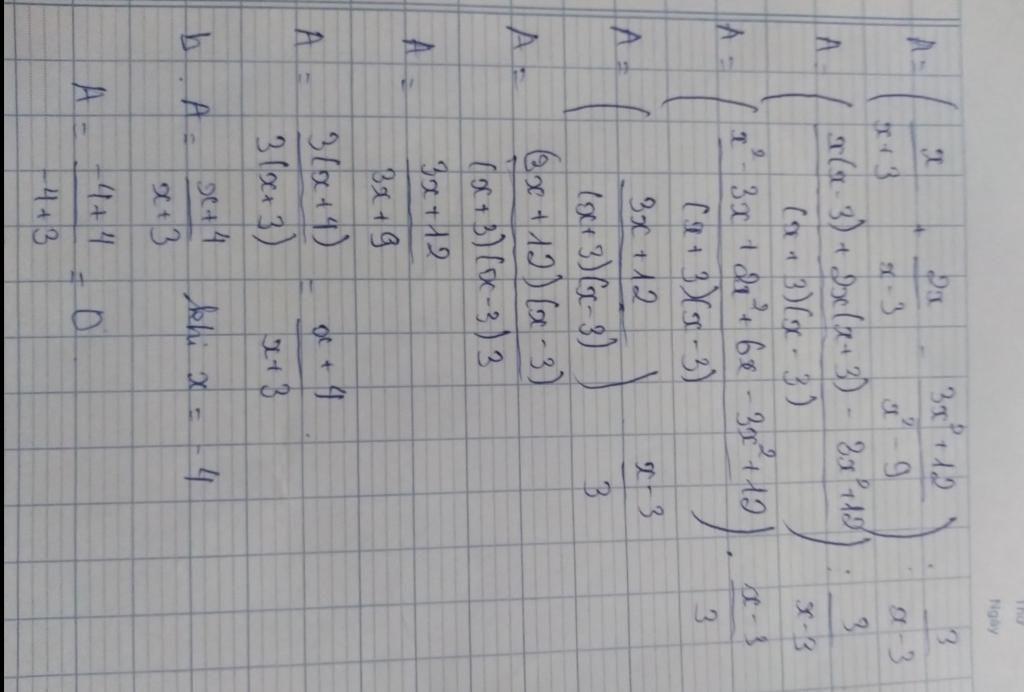 Thứ
Ngày
A = ( x/(x+3) + 2x/(x-3) - (3x²+12)/(x²-9) ) : 3/(x-3)
A = ( (x(x-3) + 2x(x+3) - 3x²+12)/((x+3)(x-3)) ) : 3/(x-3)
A = ( (x² - 3x + 2x² + 6x - 3x² + 12)/((x+3)(x-3)) ) . (x-3)/3
A = ( (3x+12)/((x+3)(x-3)) ) (x-3)/3
A = ((3x+12)(x-3))/((x+3)(x-3)3)
A = (3x+12)/(3x+9)
A = (3(x+4))/(3(x+3)) = (x+4)/(x+3) .
b. A = (x+4)/(x+3) khi x = -4
A = (-4+4)/(-4+3) = 0